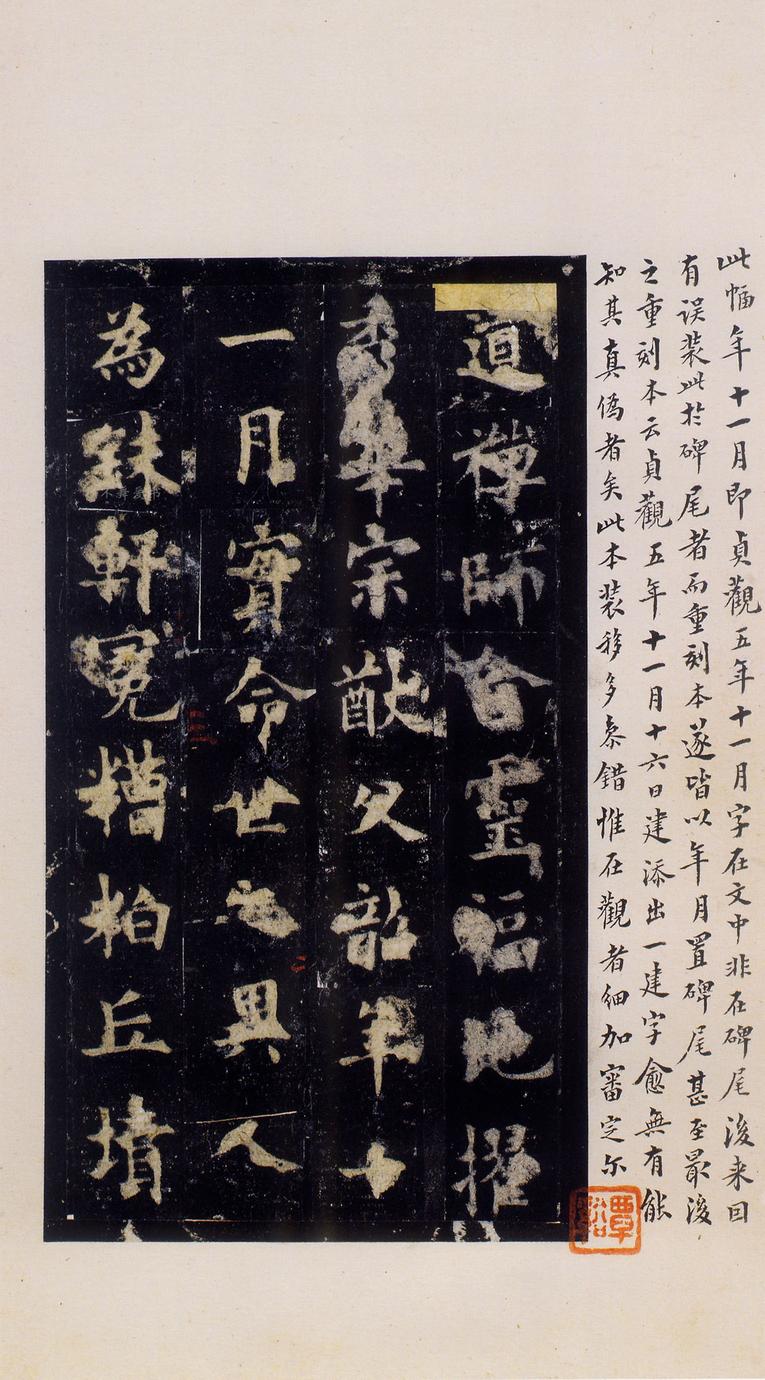 此幅年十一月即貞觀五年十一月字在文中非在碑尾後来因
有誤裝此於碑尾者而重刻本遂皆以年月置碑尾甚至最後
之重刻本云貞觀五年十一月十六日建添出一建字愈無有能
知其真偽者矣此本裝移多条錯惟在觀者細加審定尓
道禅師含靈福地擢
秀華宗猷久韶年十
一月實命世之異人
為銖軒冕糟粕丘墳
覃谿